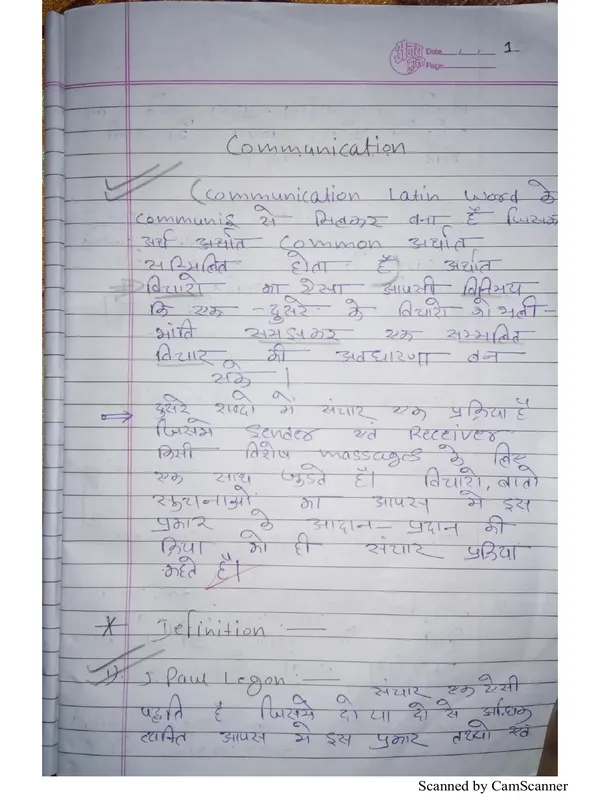 Date
Page
1
Communication
(Communication Latin word के
communis से मिलकर बना है जिसका
अर्थ अर्थात common अर्थात
सम्मिलित होता है अर्थात
विचारो का ऐसा आपसी विनिमय
कि एक - दुसरे के विचारो को भली -
भांति समझकर एक सम्मलित
विचार की अवधारणा बन
सके |
दुसरे शब्दो में संचार एक प्रक्रिया है
जिसमे Sender एवं Receiver
किसी विशेष massages के लिए
एक साथ जुडते है। विचारो, बातो
सूचनाओ का आपस मे इस
प्रकार के आदान - प्रदान की
क्रिया को ही संचार प्रक्रिया
कहते है।
* Definition :—
1) J. Paul Legon :— संचार एक ऐसी
पद्दति है जिसमे दो या दो से अधिक
व्यक्ति आपस मे इस प्रकार तथ्यो एवं
Scanned by CamScanner